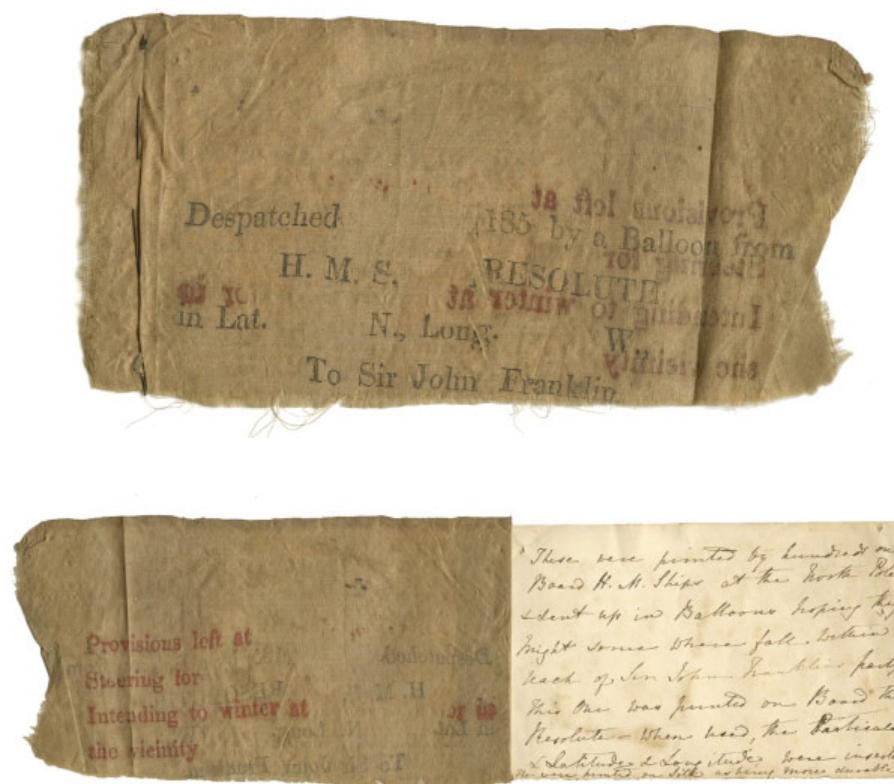 Despatched 185 by a Balloon from
H. M. S. RESOLUTE
in Lat. N., Long. W.
To Sir John Franklin.
Provisions left at
Steering for
Intending to winter at or in
the vicinity
"These were printed by hundreds on
Board H. M. Ships at the North Pole
& sent up in Balloons hoping they
might some where fall within
reach of Sir John Franklins party
This One was printed on Board the
Resolute - when used, the Particulars
& Latitude & Longitude were inserted
were printed on Silk as being more durable